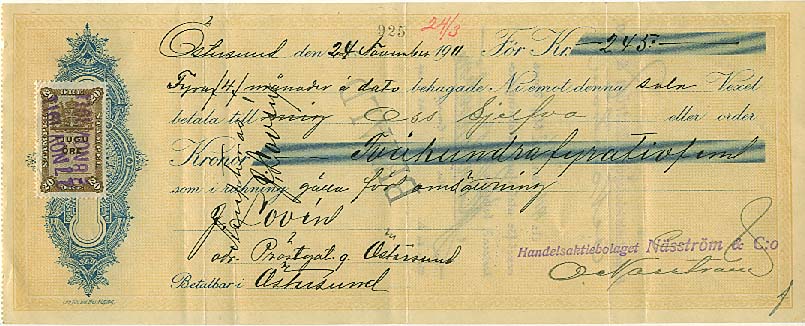 925 24/3
Östersund den 24 November 1911 För Kr. 245:-
Fyra /4/ månader à dato behagade Ni emot denna sola Vexel
betala till Oss Sjelfva eller order
Kronor Tvåhundrafyrtiofem
som i räkning gälla för omsättning
J. Lovén
adr. Prästgat. 9. Östersund
Handelsaktiebolaget Näsström & C:o
O Näsström
Betalbar i Östersund